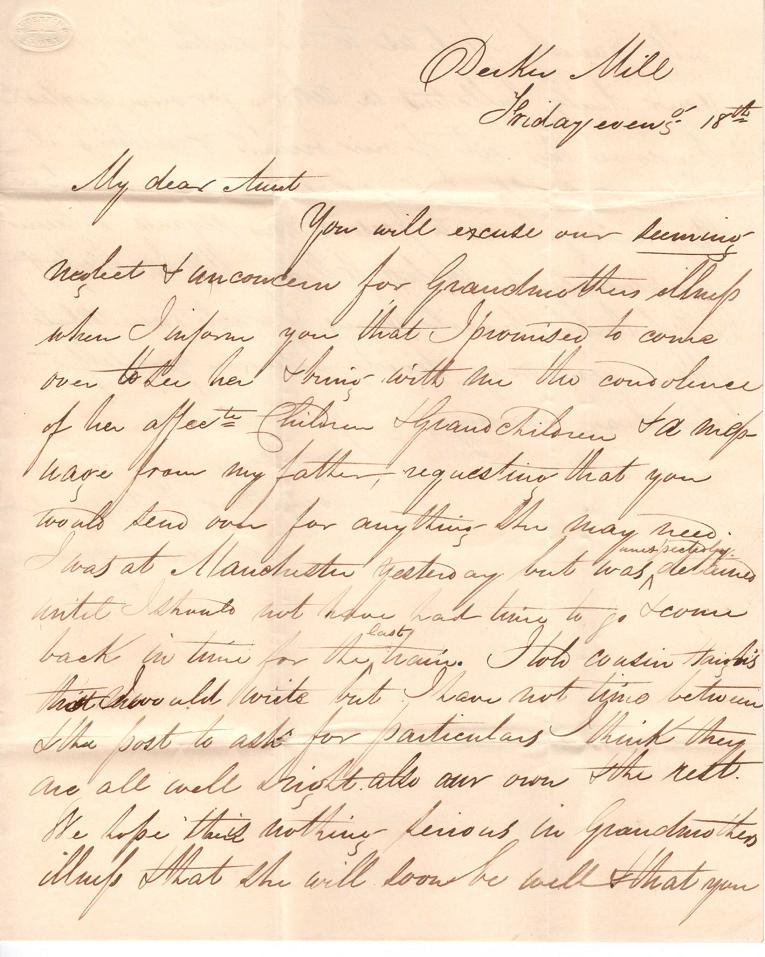 Derker Mill
Friday eveng 18th
My dear Aunt
You will excuse our seeming
neglect & unconcern for Grandmothers illness
when I inform you that I promised to come
over to see her & bring with me the condolence
of her affecte Children & Grandchildren & a mess-
uage from my father, requesting that you
would send over for anything she may need.
I was at Manchester yesterday but was unexpectedly detained
until I should not have had time to go & come
back in time for the last train. I told cousin
that I would write but I have not time between
& the post to ask for particulars I think they
are all well & right also our own & the rest.
We hope nothing serious in Grandmothers
illness & that she will soon be well & that you